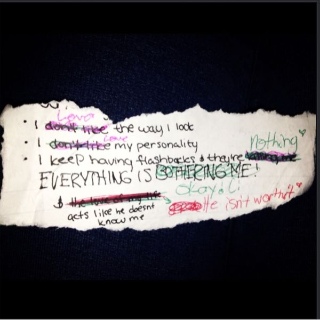 Love
• I don't like the way I look
Love
• I don't like my personality
Nothing
• I keep having flashbacks & they're
EVERYTHING IS BOTHERING ME!
okay! (:
& the love of my life
acts like he doesnt
know me
He isn't worth it